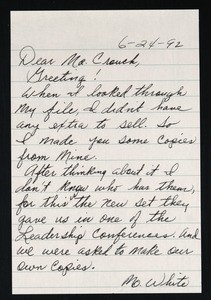 6-24-92
Dear Mo. Crouch,
Greeting!
When I looked through
My file, I didnt have
any extra to sell. So
I made you some Copies
from Mine.
After thinking about it I
don't know who has them,
for this the new set they
gave us in one of the
Leadership Conferences. And
we were asked to make our
own Copies.
Mo. White